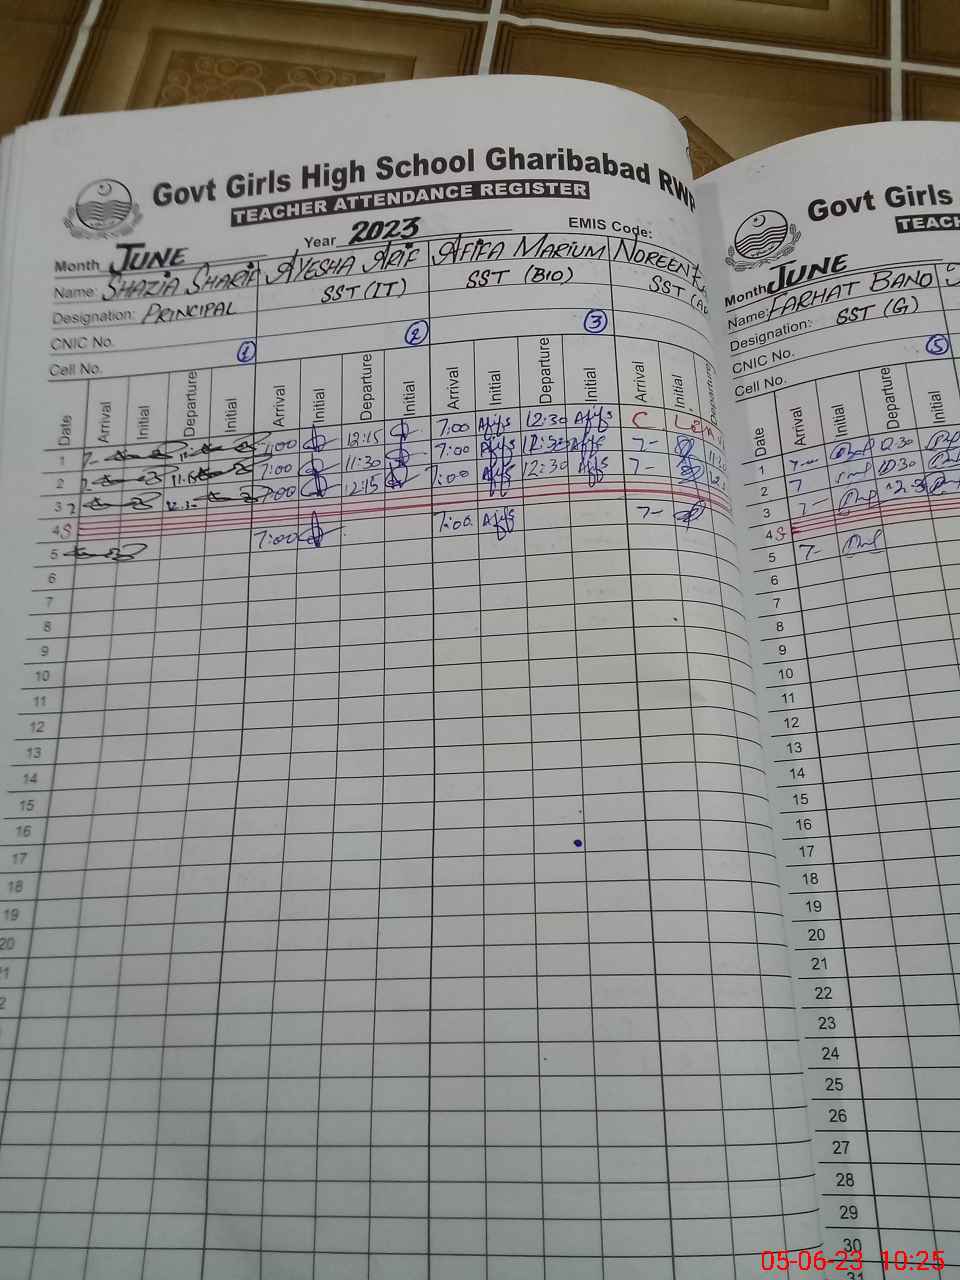 Govt Girls High School Gharibabad RWP
TEACHER ATTENDANCE REGISTER
Month JUNE Year 2023 EMIS Code:
Name: SHAZIA SHARIF AYESHA ARIF AFIFA MARIUM NOREEN
Designation: PRINCIPAL SST (IT) SST (BIO) SST
CNIC No.
Cell No. 1 2 3
Date Arrival Initial Departure Initial Arrival Initial Departure Initial Arrival Initial Departure Initial Arrival Initial Departure
1 7- 7:00 12:15 7:00 Afifs 12:30 Afifs C. Leave
2 7:00 11:30 7:00 Afifs 12:30 Afifs 7-
3 7:00 12:15 7:00 Afifs 12:30 Afifs 7-
4 S
5 7:00 7:00 Afifs 7-
6
7
8
9
10
11
12
13
14
15
16
17
18
19
20
Govt Girls
TEACH
Month JUNE
Name: FARHAT BANO
Designation: SST (G)
CNIC No.
Cell No. 5
Date Arrival Initial Departure Initial
1 7- 12:30
2 7 10:30
3 7-
4 S
5 7-
6
7
8
9
10
11
12
13
14
15
16
17
18
19
20
21
22
23
24
25
26
27
28
29
30
31
05-06-23 10:25